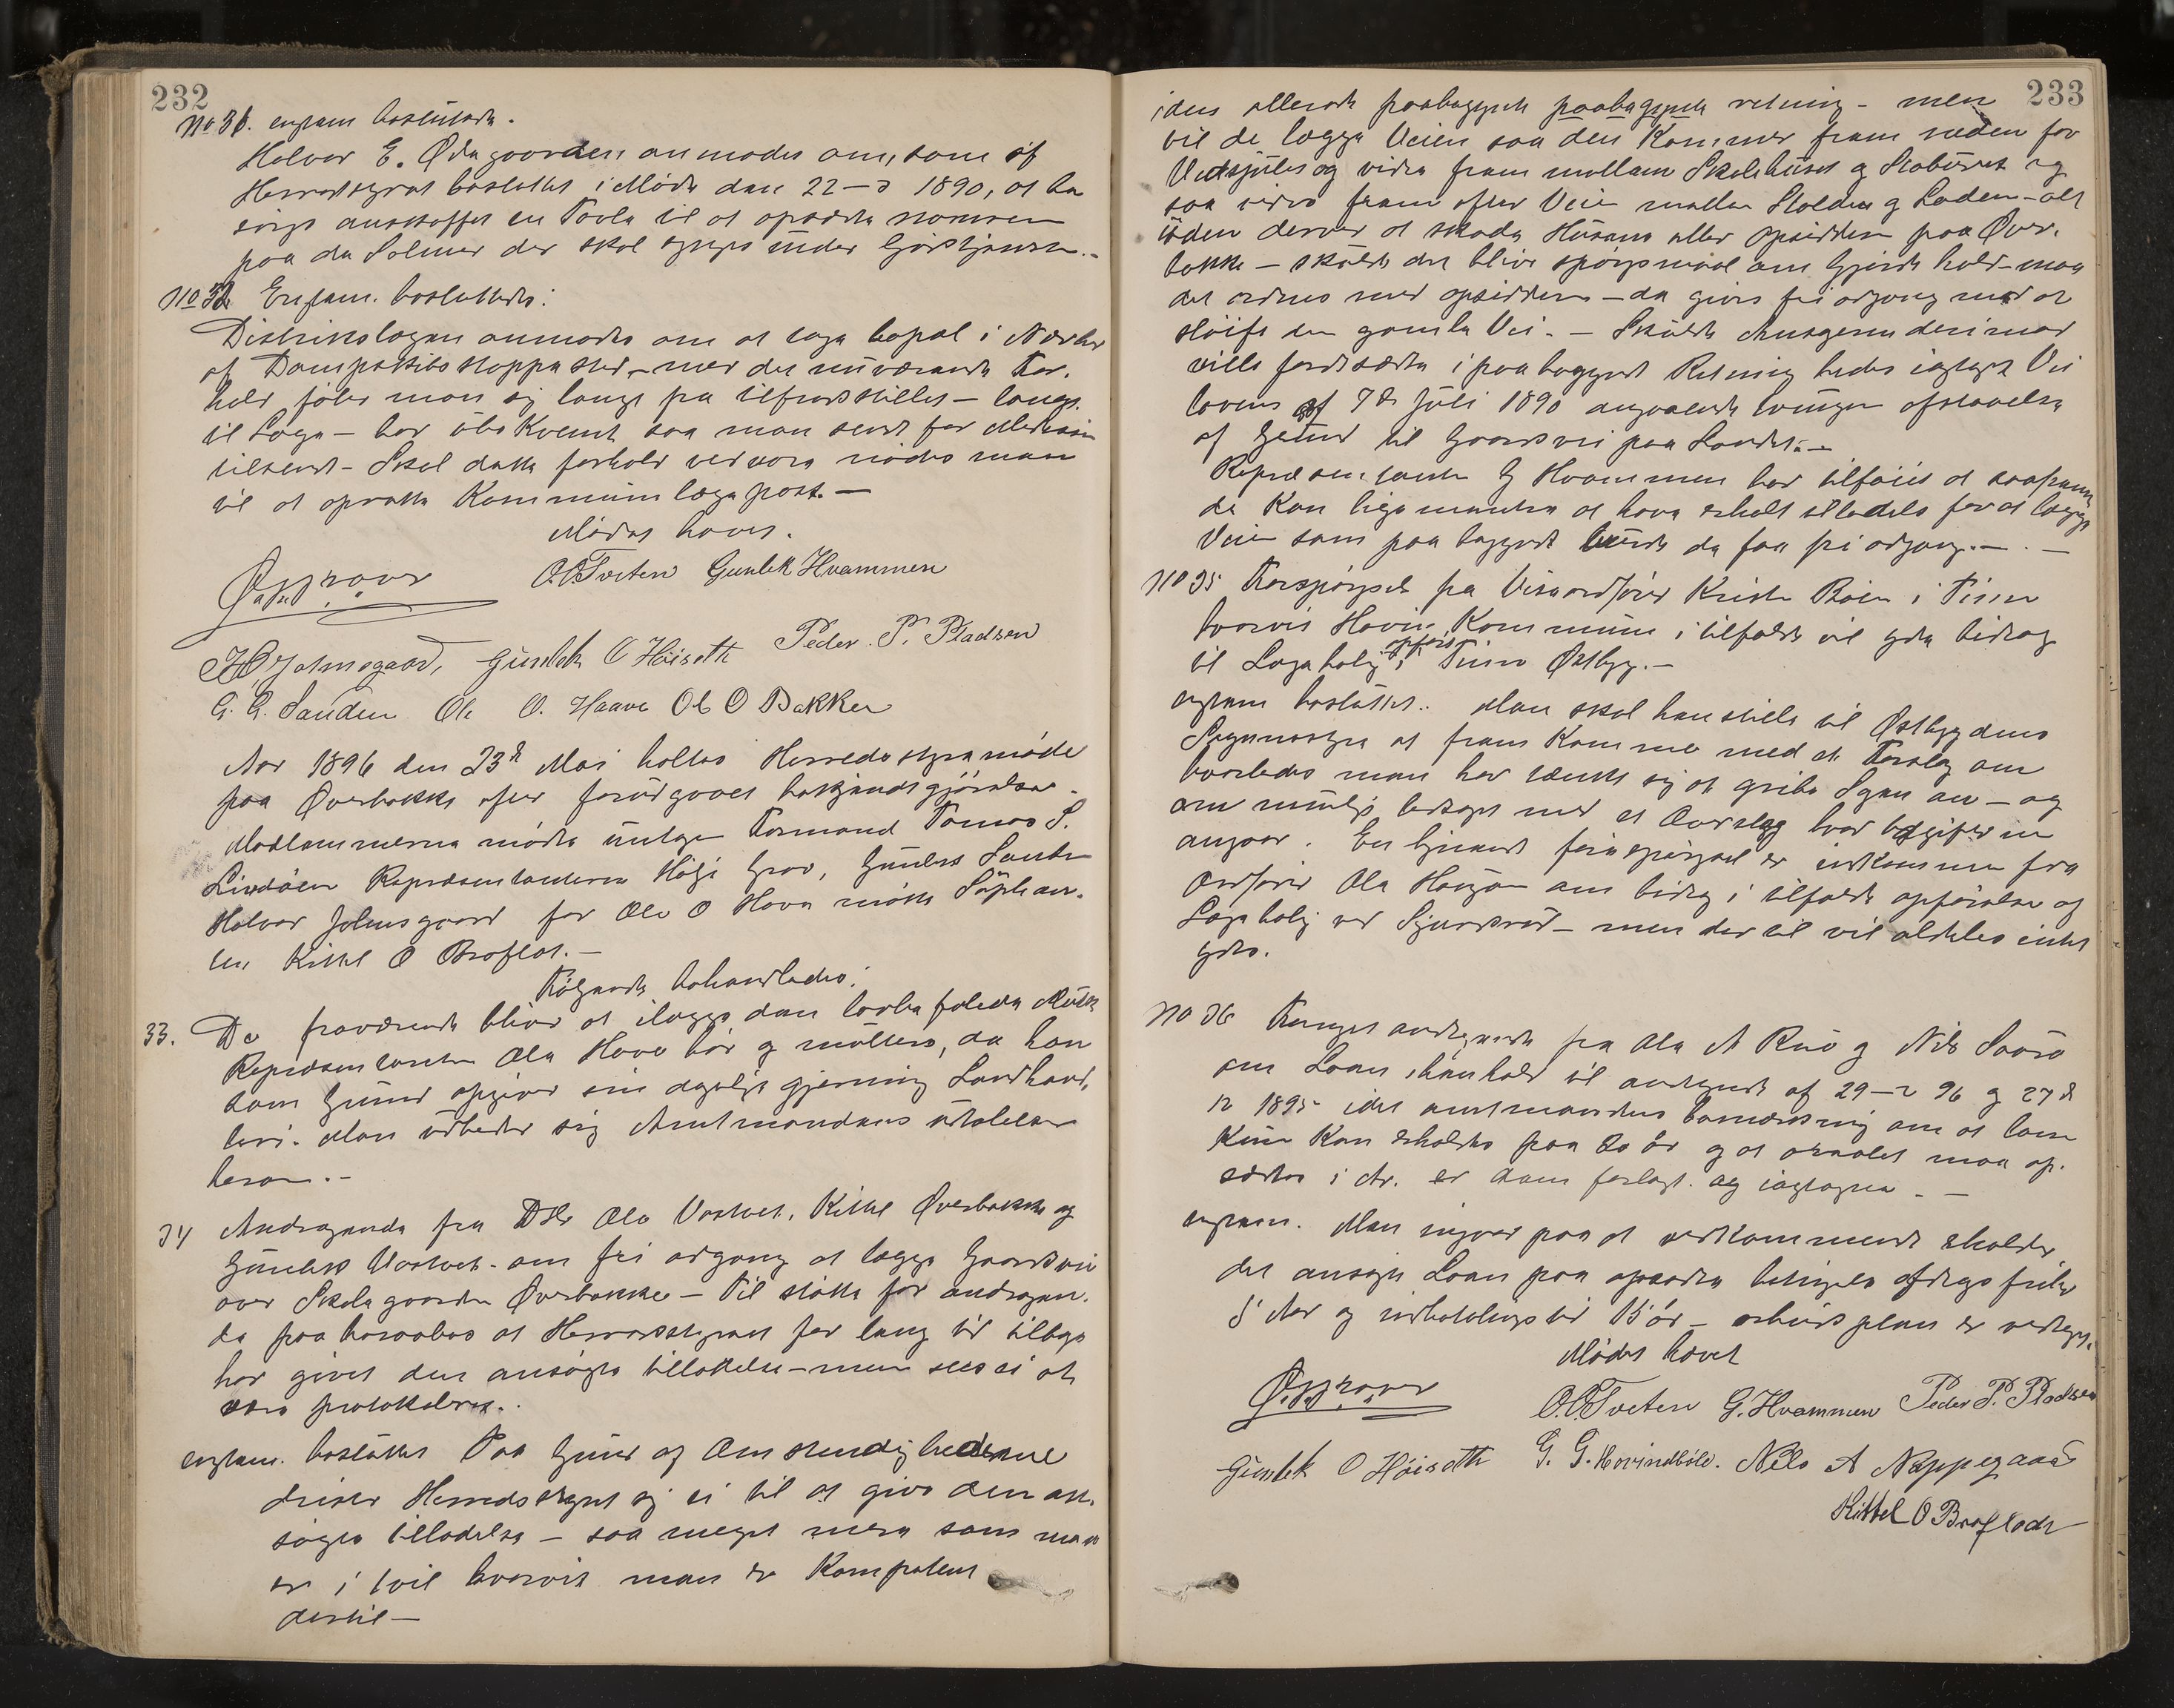 232
No 31. enstem besluttede.
Halvor E. Ødegaarden anmodes om, som af
Herredstyret besluttet i Møde den 22-3 1890, at la
sørge anskaffet en Tavle til at opsætte
paa de Salmer der skal synges under Gudstjensten.-
No 32 Enstem. besluttedes:
Distriktslægen anmodes om at tage bopæl i Nærhed
af Dampskibsstoppested, - med det nuværende For-
hold føler man sig langt fra tilfredsstillet - langt
til Læge - har ubekvemt saa man sendt for Medesin
tilsendt - Skal dette forhold vedvare nødes man
til at oprette Kommunelægepost. -
Mødet hævet.
O.O. Tveten Gunlek Hvammen
H. O. Jolmsgaard, Gunlek O Høiseth Peder. P. Pladsen
G. G. Sanden Ole O. Haave Ole O Bakken
Aar 1896 den 23de Mai holtes Herredsstyremøde
paa Øverbøkke efter forudgaaet bekjendtgjørelse.
Medlemmerne mødte untagen Formand Tomas S.
Lindøen Repræsentanterne Helge Grov, Gunleks Sanden
Halvor Jolmsgaard for Ole O Hove møtte Suplean-
ten Kittel O Broflot. -
Følgende behandledes:
33. De fraværende bliver at ilægge den lovbefalede Mulkt
Repræsentanten Ole Hove bør ei mulkteres, da han
som Grund opgiver sin daglige gjerning Landhand-
leri. Man udbeder sig Amtmandens udtalelse
herom. -
34 Andragende fra DHr Ole Vaatvet, Kittel Øverbøkke og
Gunleks Vaatvet - om fri adgang at lægge Gaardsvei
over Skolegaarden Øverbøkke - Til støtte for andragen-
de paaberaabes at Herredsstyret for lang tid tilbage
har givet den ansøgte tilladelse - men sees ei at
være protokoleret. -
enstem. besluttet Paa Grund af Omstendighederne
drister Herredsstyret sig ei til at give den an-
søgte tilladelse - saa meget mere som man
er i tvil hvorvit man er Kompetent
dertil -
233
iden allerede paabegynte paabegynte retning - men
vil de lægge Veien saa den Kommer fram neden for
Vedskjulet og videre fram mellem Skolehuset og Stabburet og
saa videre fram efter Veien mellem Stolden og Laden - alt
uden derved at skade Husene eller opsidderen paa Øver-
bøkke - skulde det blive spørgsmaal om Gjerdehold - maa
det ordnes med opsidderen - da gives fri adgang med at
sløife den gamle Vei. - Skulde Ansøgerne derimod
ville fortsætte i paabegynt Retning bedes iagtaget Vei
lovens af 7de Juli 1890 angaaende tvungen afstaaelse
af Grund til Gaardsvei paa Landet. -
Repræsentanten G Hvammen har tilføiet at saafremt
de Kan legemantere at have erholt tilladelse for at lægge
Veien som paabegynt burde da faa fri adgang. -
No 35 Forespørgsel fra Viseordfører Kristen Bøen i Tinn
hvorvit Hovin Kommune i tilfælde vil yde bidrag
til Lægebolig opført i Tinn Østbyg. -
enstem besluttet. Man skal henstille til Østbygdens
Sognestyre at fram Komme med et Forslag om
hvorledes man har tænkt sig at gribe Sagen an - og
om muligt ledsaget med et Overslag hvad udgifterne
angaar. En lignende forespørgsel er indkommen fra
Ordfører Ole Haugen om bidrag i tilfælde opførelse af
Lægebolig ved - men der til vil aldeles intet
ydes.
No 36 Fornyet andragende fra Ole A Rui og Nils Saaro
om Laan, i henhold til andragende af 29-2 96 og 27de
12 1895 idet amtmandens bemærkning om at laan
Kun Kan erholdes paa 20 år og at arealet maa op-
sættes i Ar. er dem forelagt. og iagttagne. -
enstem. Man ingaar paa at vedkommende erholder
det ansøgte Laan paa opsatte betingelse afdragsfrihed
5 Aar og indbetalingstid 15 år - arbeidsplan er vedlagt.
Mødet hævet
O.O. Tveten G. Hvammen Peder P. Pladsen
Gunlek O Høiseth G. G. Hovindbøle. Nils A Nappegaard
Kittel O Broflodt